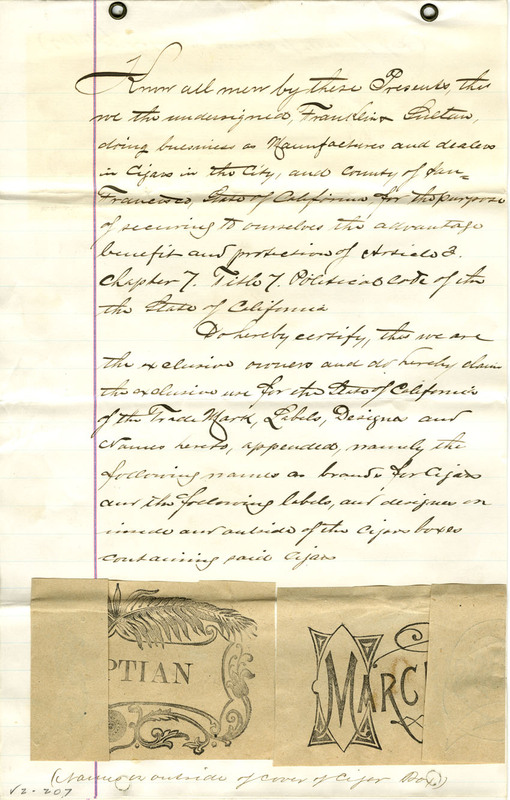 Know all men by these Presents, that
we the undersigned, Franklin & Gultan,
doing buesiness as Manufactures and dealers
in Cigars in the City, and County of San=
Francisco, State of California for the purpose
of securing to ourselves the advantage
benefit and protection of Article 3.
Chapter 7. Title 7. Political Code of the
the State of California
Do hereby certify, that we are
the exclusive owners and do hereby claim
the exclusive use for the State of California
of the Trade Mark, Labels, Designs and
Names hereto, appended, namely the
following names as brands for Cigars
and the following labels, and designes on
inside and outside of the Cigar boxes
containing said Cigars
PTIAN
MARC
(Names on outside of cover of Cigar Box)
V2-207